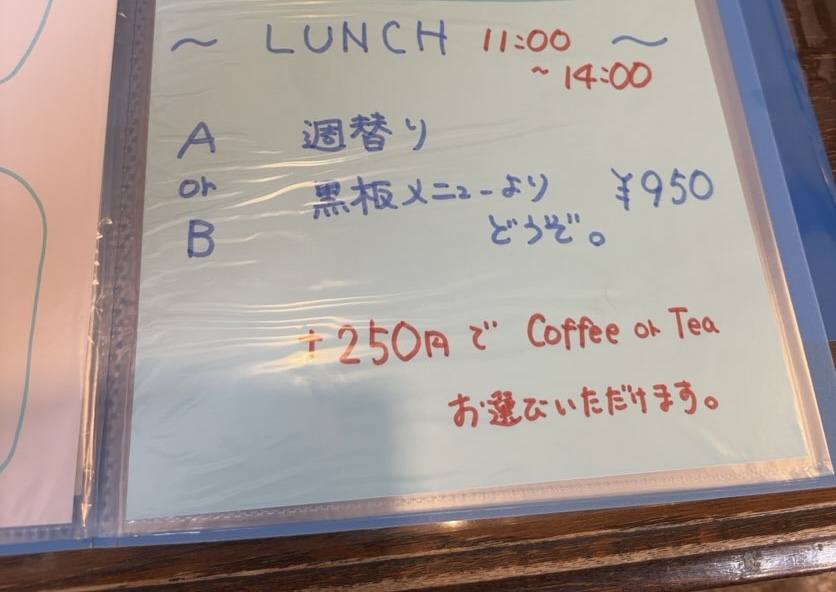 ～ LUNCH 11:00 ～
~ 14:00
A 週替り
or 黒板メニューより ¥950
B どうぞ。
+250円で Coffee or Tea
お選びいただけます。